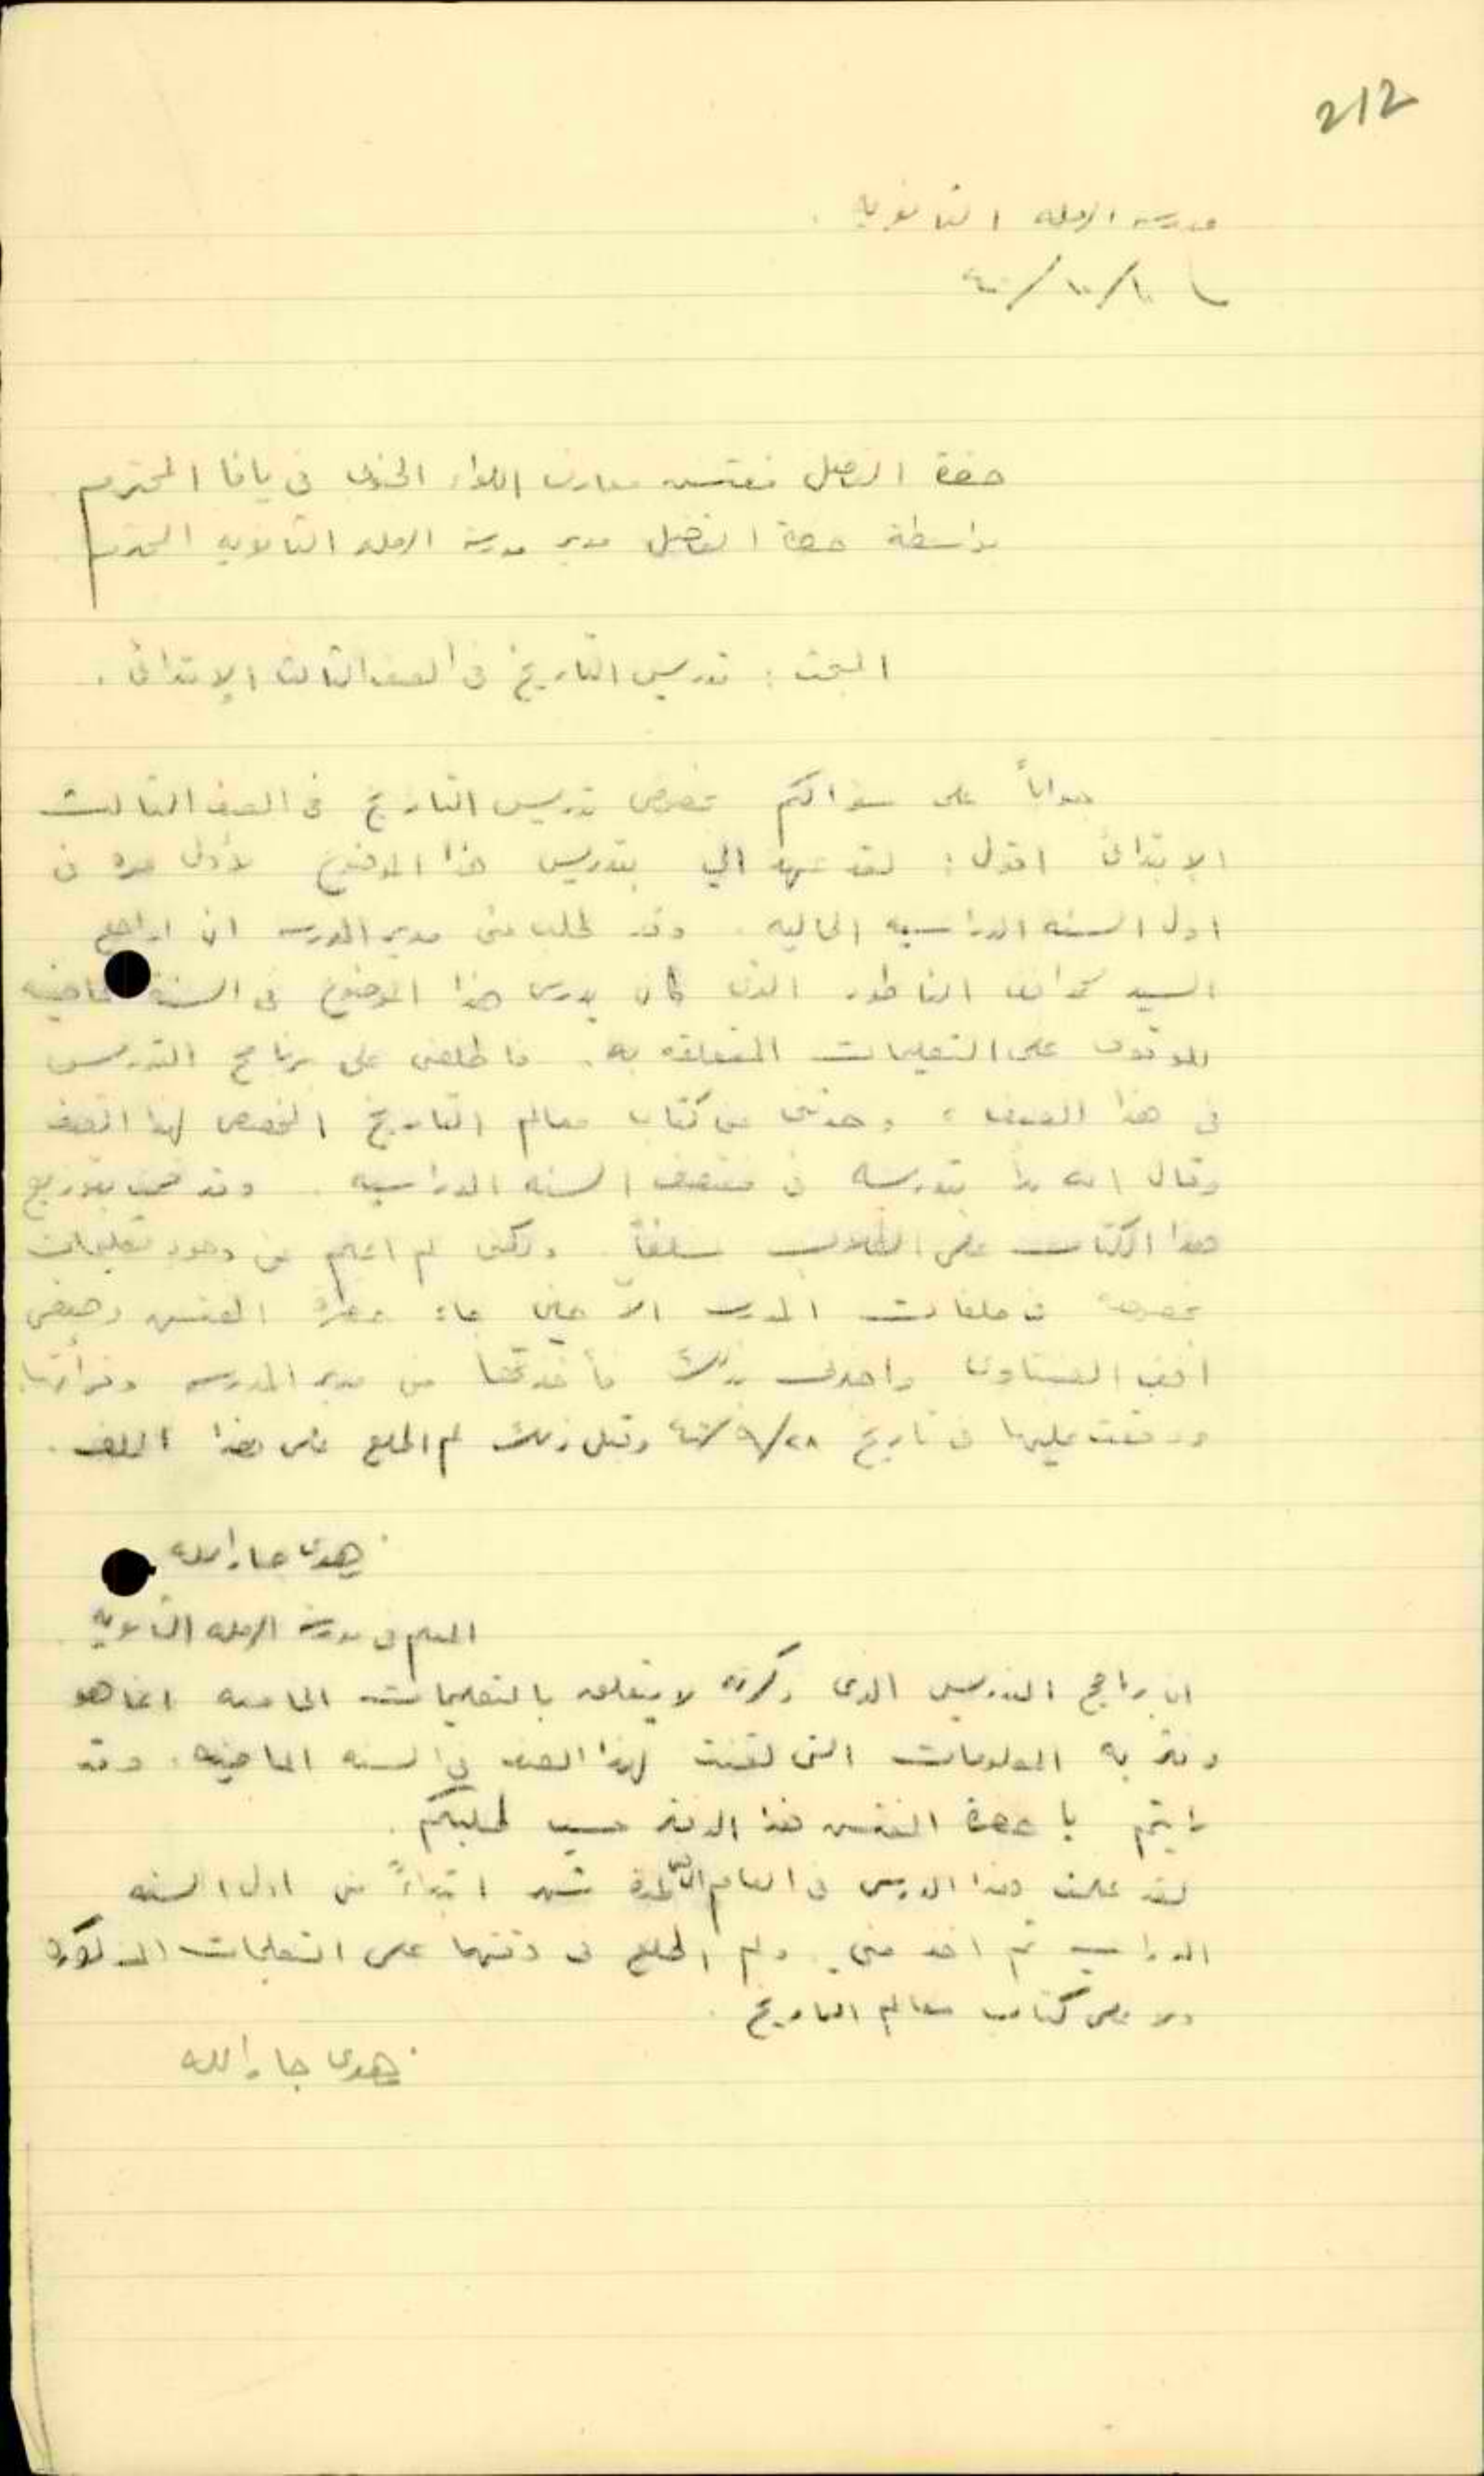 212
مدرسة الرمله الثانويه .
في ١٠/١٠/٤٠
حضرة الفاضل مفتش معارف اللواء الجنوبي في يافا المحترم
بواسطة حضرة الفاضل مدير مدرسة الرمله الثانويه المحترم
البحث : تدريس التاريخ في الصف الثالث الإبتدائي .
جواباً على سؤالكم بخصوص تدريس التاريخ في الصف الثالث
الابتدائي اقول : لقد عهد الي بتدريس هذا الموضوع لأول مره في
اول السنه الدراسيه الحاليه . وقد طلب مني مدير المدرسه ان اراجع
السيد الناطور الذي كان يدرس هذا الموضوع في السنة الماضيه
للوقوف على التعليمات المتعلقه به . فاطلعني على برنامج التدريس
في هذا الصف وحدثني عن كتاب معالم التاريخ المخصص لهذا الصف
وقال انه بدأ بتدريسه في منتصف السنه الدراسيه . وقد قمت بتوزيع
هذا الكتاب على الطلاب سلفاً . ولكني لم اعلم عن وجود تعليمات
بخصوصه في ملفات المدرسه الّا حين جاء حضرة المفتش
واخبرني بذلك فأخذتها من مدير المدرسه وقرأتها
ووقعت عليها في تاريخ ٢٨/٩/٤٠ وقبل ذلك لم اطلع على هذا الملف .
زهدي جارالله
المعلم في مدرسة الرمله الثانويه
ان برنامج التدريس الذي ذكرته لا يتعلق بالتعليمات الخاصه انما هو
دفتر به المعلومات التي لقنت لهذا الصف في السنه الماضيه . وقد
رايتم يا حضرة المفتش هذا الدفتر حسب طلبكم .
لقد علمت هذا الدرس في العام لمدة شهر ابتداءً من اول السنه
الدراسيه ثم اخذ مني . ولم اطلع في وقتها على التعليمات المذكوره
ولا على كتاب معالم التاريخ .
زهدي جارالله